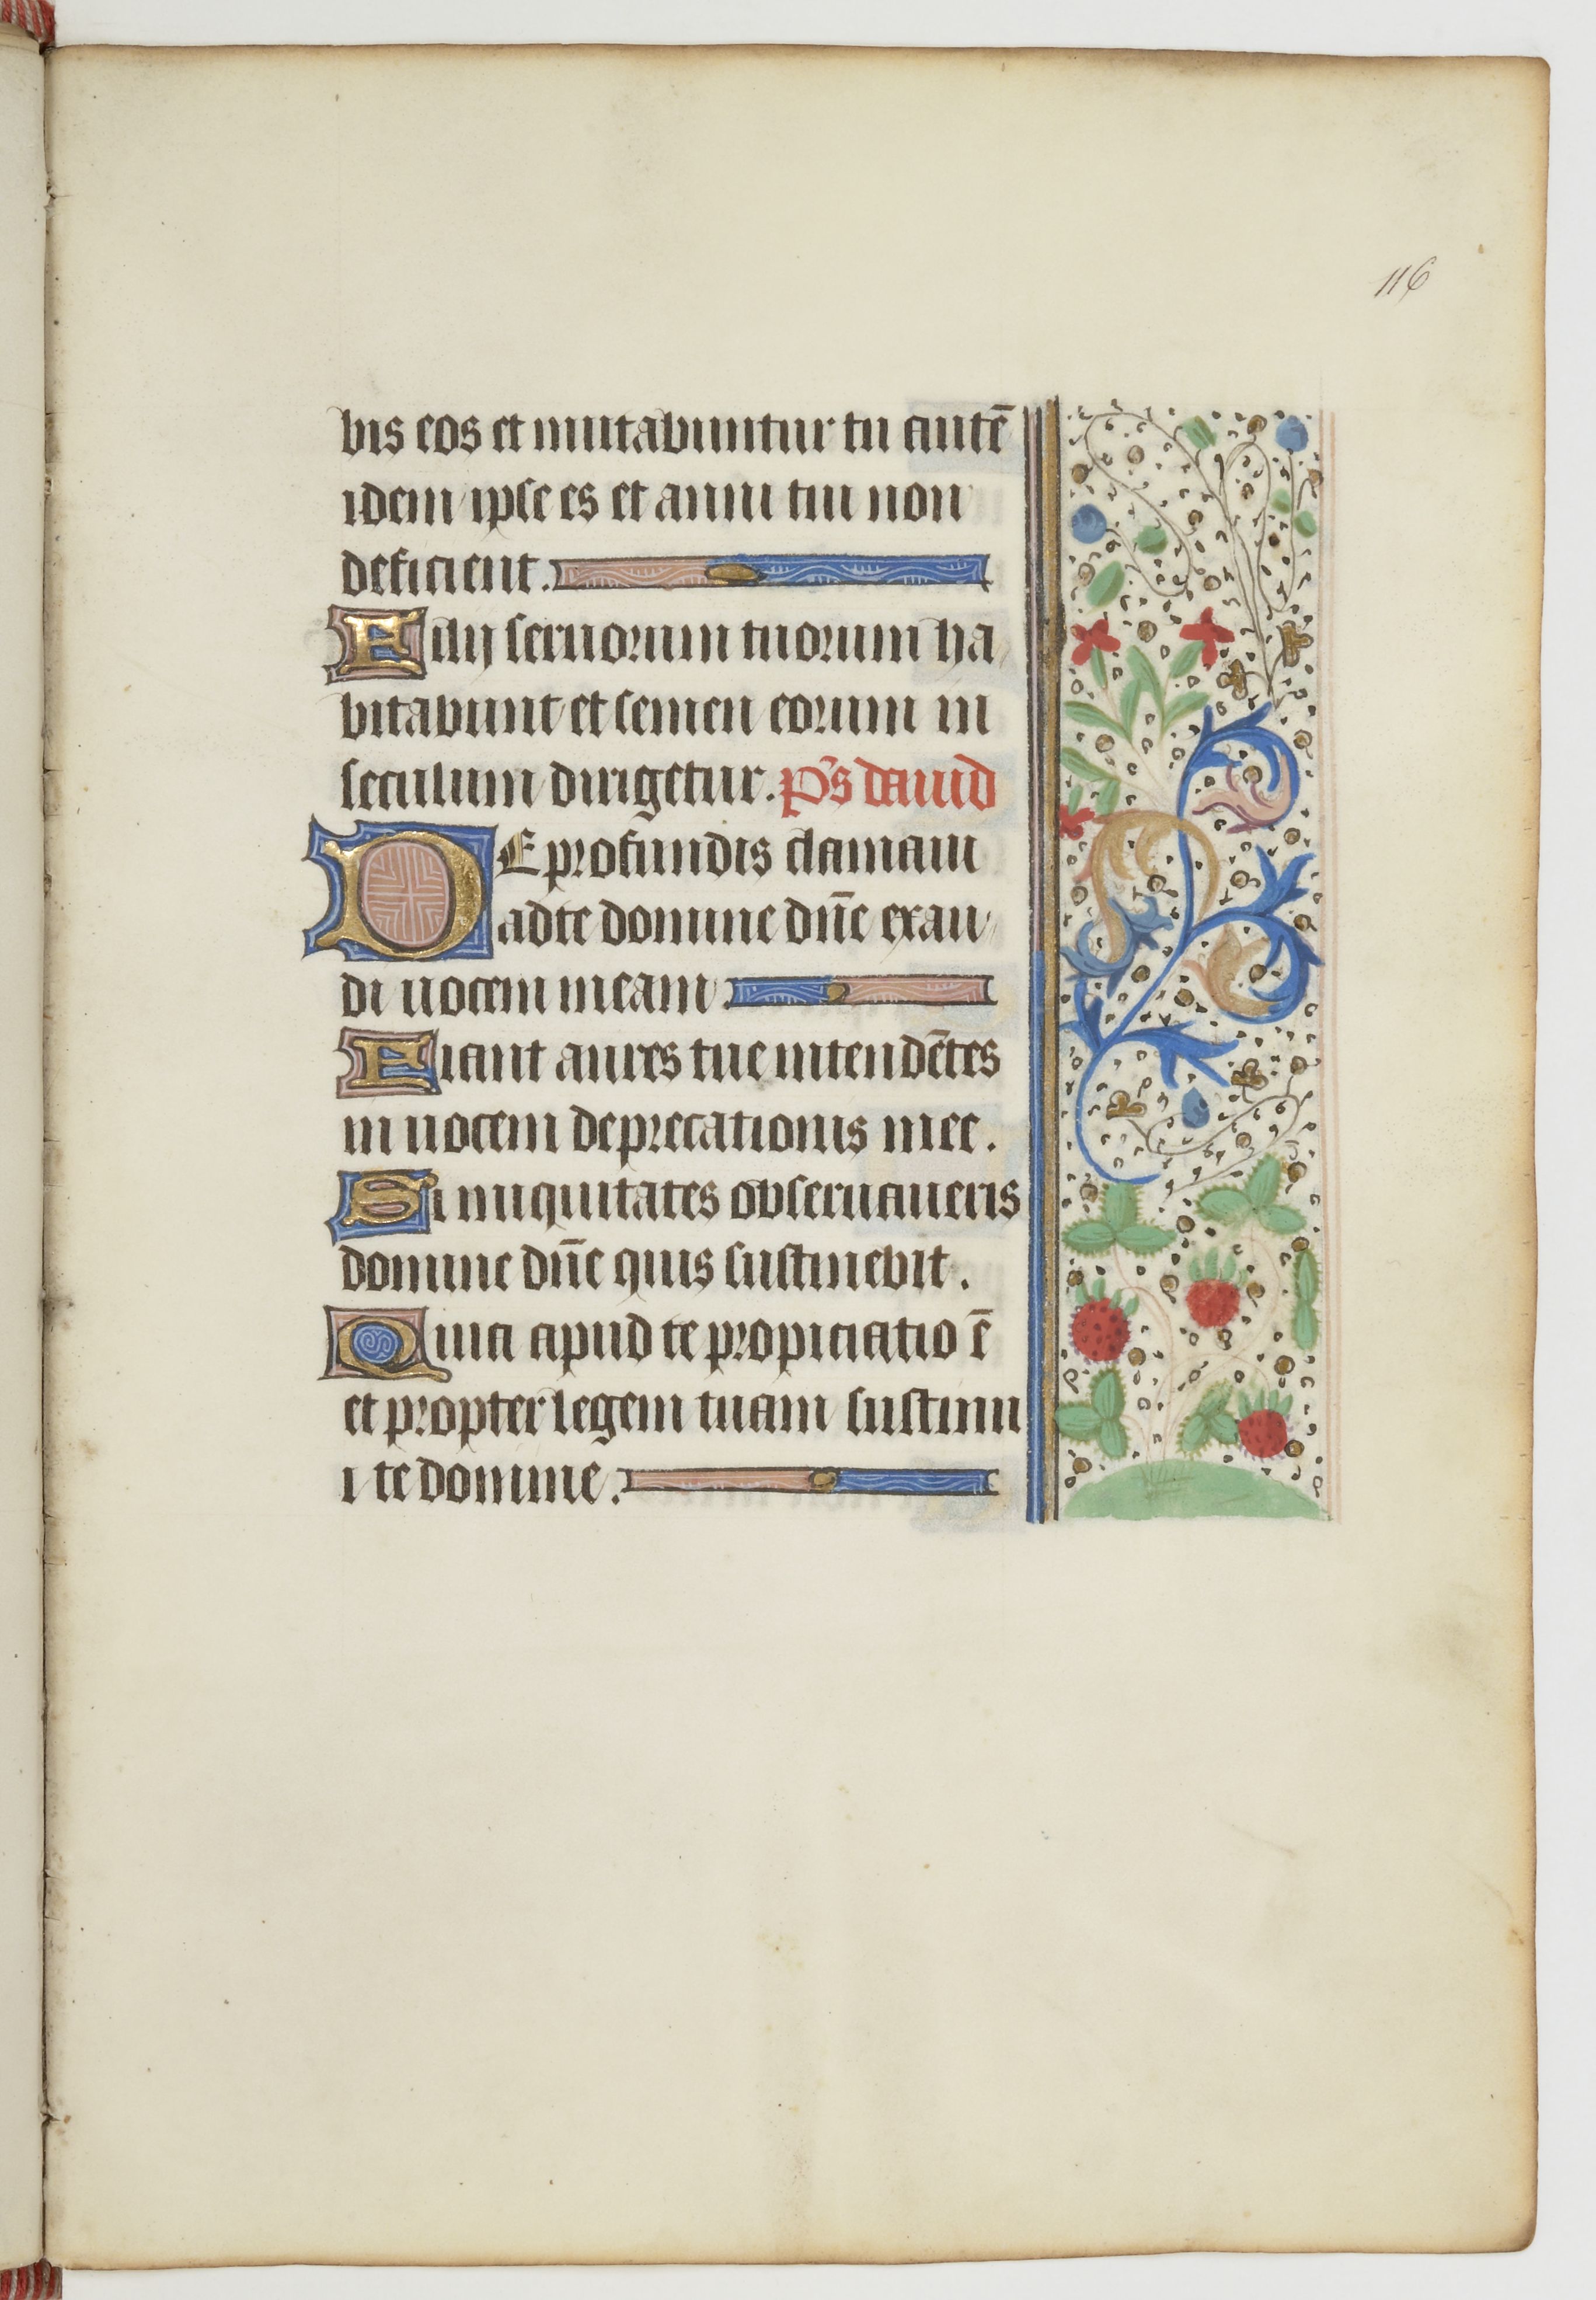 116
bis eos et mutabuntur tu autē
idem ipse es et anni tui non
deficient.
Filij seruorum tuorum ha
bitabunt et semen eorum in
seculum dirigetur. P̄s dauid
DE profundis clamaui
ad te domine dn̄e exau
di uocem meam.
Fiant aures tue intendētes
in uocem deprecationis mee.
Si iniquitates obseruaueris
domine dn̄e quis sustinebit.
Quia apud te propiciatio ē
et propter legem tuam sustinu
i te domine.